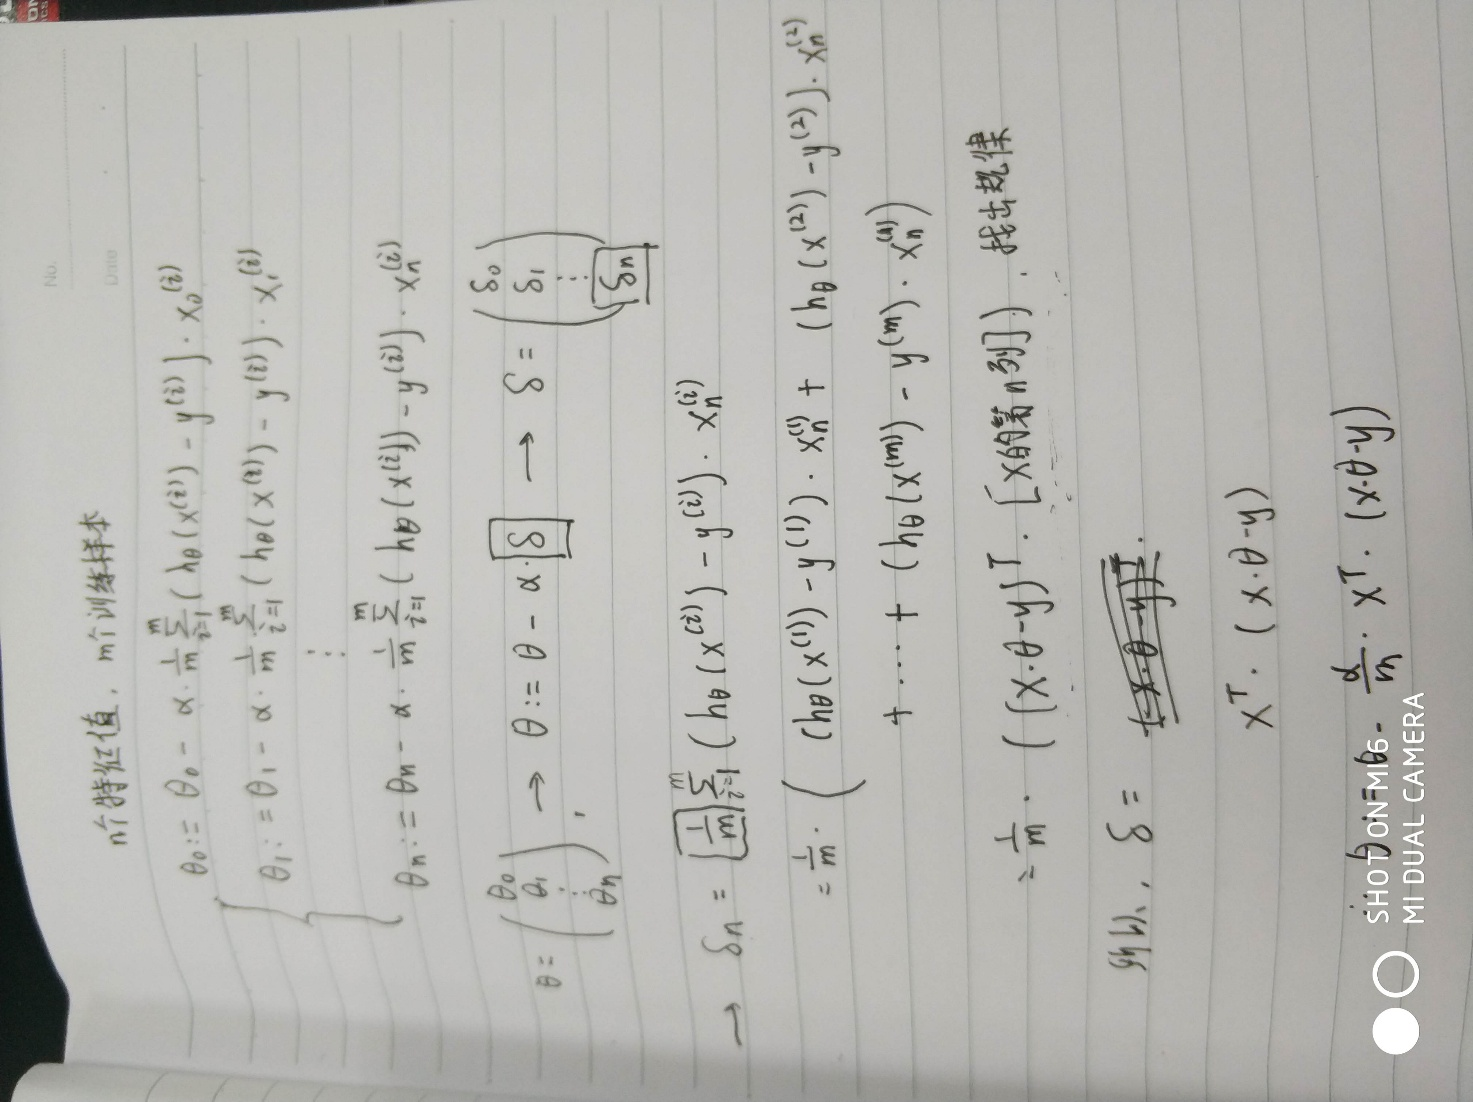 No.
Date
n个特征值, m个训练样本
θ₀ := θ₀ - α · 1/m Σᵢ₌₁ᵐ (hθ(x⁽ⁱ⁾) - y⁽ⁱ⁾) · x₀⁽ⁱ⁾
θ₁ := θ₁ - α · 1/m Σᵢ₌₁ᵐ (hθ(x⁽ⁱ⁾) - y⁽ⁱ⁾) · x₁⁽ⁱ⁾
⋮
θₙ := θₙ - α · 1/m Σᵢ₌₁ᵐ (hθ(x⁽ⁱ⁾) - y⁽ⁱ⁾) · xₙ⁽ⁱ⁾
θ = (θ₀ θ₁ ⋮ θₙ), → θ := θ - α · δ → δ = (δ₀ δ₁ ⋮ δₙ)
→ δₙ = 1/m Σᵢ₌₁ᵐ (hθ(x⁽ⁱ⁾) - y⁽ⁱ⁾) · xₙ⁽ⁱ⁾
= 1/m · ( (hθ(x⁽¹⁾) - y⁽¹⁾) · xₙ⁽¹⁾ + (hθ(x⁽²⁾) - y⁽²⁾) · xₙ⁽²⁾
+ .... + (hθ(x⁽ᵐ⁾) - y⁽ᵐ⁾) · xₙ⁽ᵐ⁾)
= 1/m · ((X·θ-y)ᵀ · [X的第n列]) . 找出规律
, δ =
Xᵀ · (X·θ-y)
∴ θ := θ - α/m · Xᵀ · (X·θ-y)
SHOT ON MI 6
MI DUAL CAMERA